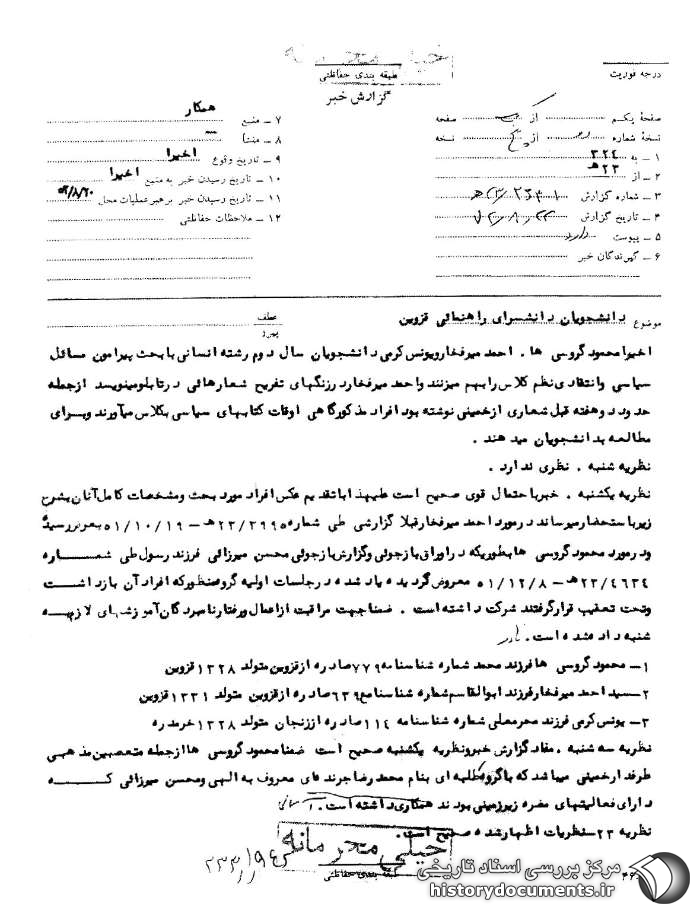 خیلی محرمانه
طبقه بندی حفاظتی
گزارش خبر
درجه فوریت
صفحهٔ یکم از صفحه
نسخهٔ شماره از نسخه
۱ ـ به ۳۲۴
۲ ـ از ۲۳ هـ
۳ ـ شماره گزارش
۴ ـ تاریخ گزارش
۵ ـ پیوست دارد
۶ ـ گیرندگان خبر
۷ ـ منبع همکار
۸ ـ منشأ ـ
۹ ـ تاریخ وقوع اخیرا
۱۰ ـ تاریخ رسیدن خبر به منبع اخیرا
۱۱ ـ تاریخ رسیدن خبر برهبر عملیات محل
۱۲ ـ ملاحظات حفاظتی
موضوع دانشجویان دانشسرای راهنمائی قزوین
عطف
پیرو
اخیرا محمود گروسی ها . احمد میرفخار ویونس کرمی دانشجویان سال دوم رشته انسانی با بحث پیرامون مسائل
سیاسی وانتقادی نظم کلاس را بهم میزنند واحمد میرفخار در زنگهای تفریح شعارهائی در تابلو مینویسد ازجمله
حدود دو هفته قبل شعاری از خمینی نوشته بود افراد مذکور گاهی اوقات کتابهای سیاسی بکلاس میآورند وبرای
مطالعه بدانشجویان میدهند .
نظریه شنبه . نظری ندارد .
نظریه یکشنبه . خبر باحتمال قوی صحیح است علیهذا با تقدیم عکس افراد مورد بحث ومشخصات کامل آنان بشرح
زیر باستحضار میرساند در مورد احمد میرفخار قبلا گزارشی طی شماره ۲۳/۳۹۹۵هـ ـ ۵۱/۱۰/۱۹ بعرض رسیده
ودر مورد محمود گروسی ها بطوریکه در اوراق بازجوئی وگزارش بازجوئی محسن میرزائی فرزند رسول طی شماره
۲۳/۴۶۳۴هـ ـ ۵۱/۱۲/۸ معروض گردیده یاد شده در جلسات اولیه گروه منظور که افراد آن بازداشت
وتحت تعقیب قرار گرفتند شرکت داشته است . ضمنا جهت مراقبت از اعمال ورفتار نامبردگان آموزشهای لازم به
شنبه داده شده است .
۱ـ محمود گروسی ها فرزند محمد شماره شناسنامه ۷۷۹ صادره از قزوین متولد ۱۳۲۸ قزوین
۲ـ سید احمد میرفخار فرزند ابوالقاسم شماره شناسنامه ۶۳۹ صادره از قزوین متولد ۱۳۳۱ قزوین
۳ـ یونس کرمی فرزند محرمعلی شماره شناسنامه ۱۱۴ صادره از زنجان متولد ۱۳۲۸ خرمدره
نظریه سه شنبه . مفاد گزارش خبر ونظریه یکشنبه صحیح است ضمنا محمود گروسی ها ازجمله متعصبین مذهبی
طرفدار خمینی میباشد که با گروه طلبه ای بنام محمد رضا جرندهای معروف به الهی ومحسن میرزائی که
دارای فعالیتهای مضره زیرزمینی بودند همکاری داشته است .
نظریه ۲۳ـ نظریات اظهار شده صحیح است
خیلی محرمانه
طبقه بندی حفاظتی
مرکز بررسی اسناد تاریخی
historydocuments.ir